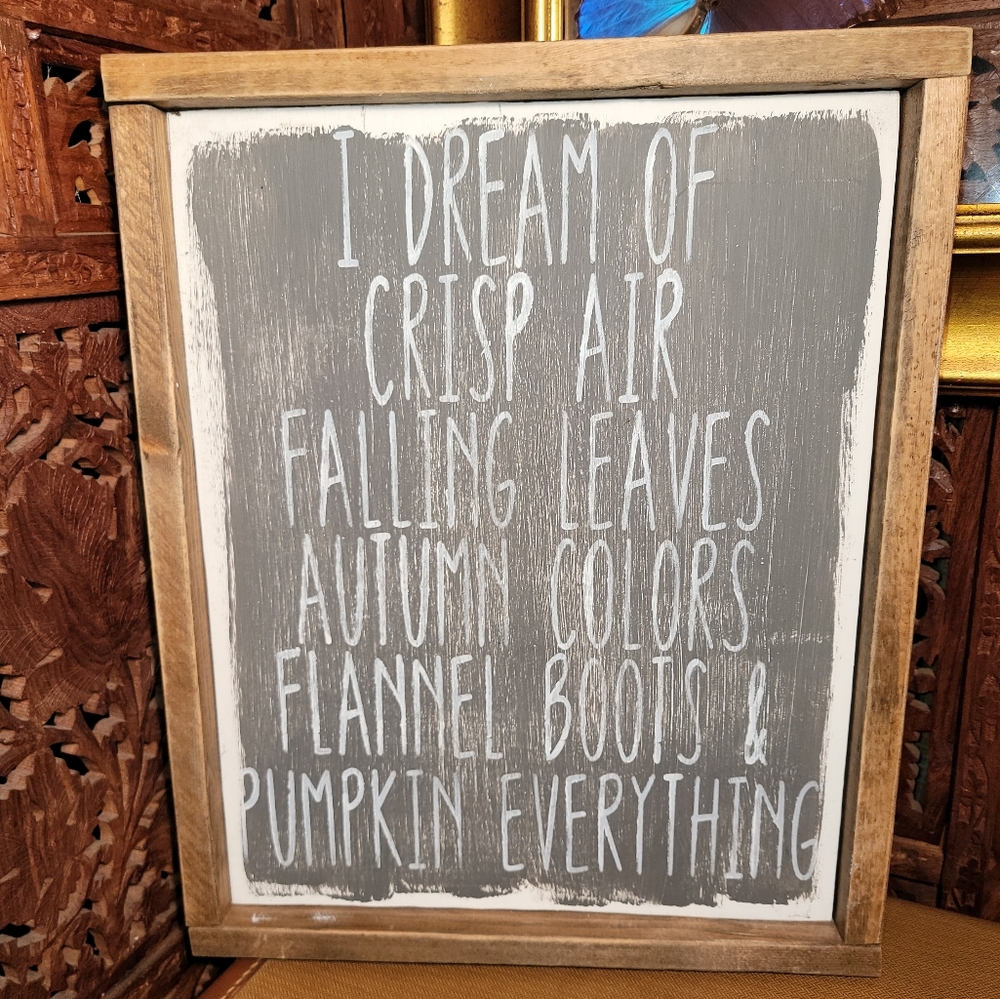 I DREAM OF
CRISP AIR
FALLING LEAVES
AUTUMN COLORS
FLANNEL BOOTS &
PUMPKIN EVERYTHING